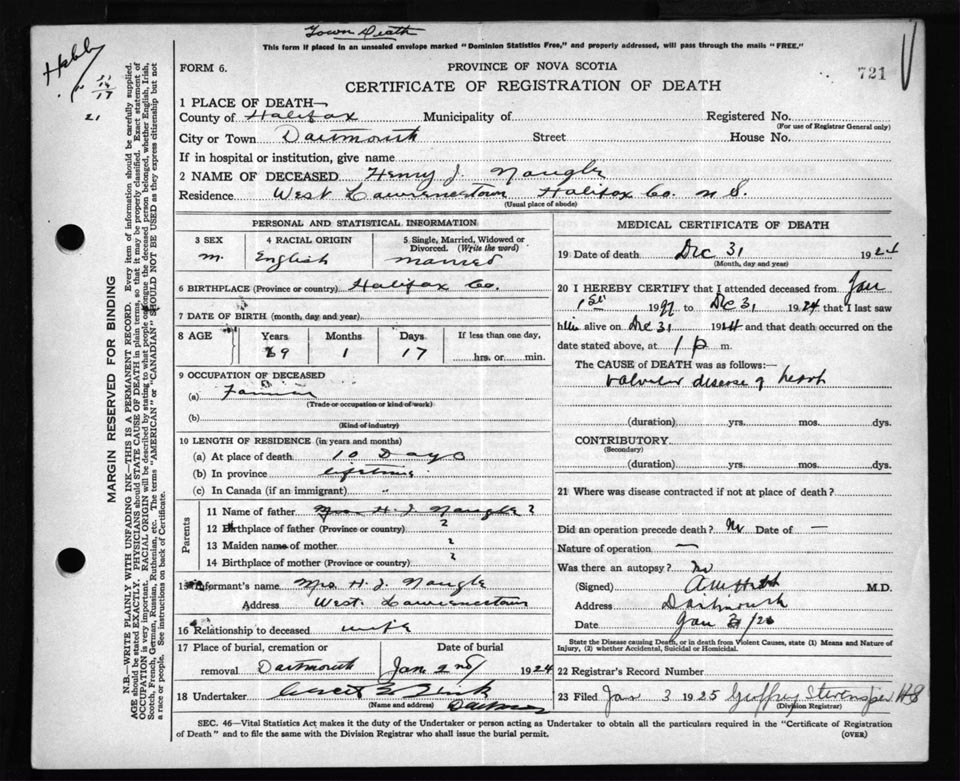 Town Death
This form if placed in an unsealed envelope marked "Dominion Statistics Free," and properly addressed, will pass through the mails "FREE."
FORM 6.
PROVINCE OF NOVA SCOTIA
721
CERTIFICATE OF REGISTRATION OF DEATH
11
14
17
21
MARGIN RESERVED FOR BINDING
N.B.—WRITE PLAINLY WITH UNFADING INK—THIS IS A PERMANENT RECORD. Every item of information should be carefully supplied.
AGE should be stated EXACTLY. PHYSICIANS should STATE CAUSE OF DEATH in plain terms, so that it may be properly classified. Exact statement of
OCCUPATION is very important. RACIAL ORIGIN will be described by stating to what people or tongue the deceased person belonged, whether English, Irish,
Scotch, French, German, Russian, Ruthenian, etc. The terms "AMERICAN" or "CANADIAN" SHOULD NOT BE USED as they express citizenship but not
a race or people. See instructions on back of Certificate.
1 PLACE OF DEATH—
County of Halifax Municipality of Registered No.
(For use of Registrar General only)
City or Town Dartmouth Street House No.
If in hospital or institution, give name
2 NAME OF DECEASED Henry J. Naugle
Residence West Lawrencetown Halifax Co. N S.
(Usual place of abode)
PERSONAL AND STATISTICAL INFORMATION
3 SEX 4 RACIAL ORIGIN 5 Single, Married, Widowed or Divorced. (Write the word)
m. English married
6 BIRTHPLACE (Province or country) Halifax Co.
7 DATE OF BIRTH (month, day and year)
8 AGE Years Months Days If less than one day,
69 1 17 hrs. or min.
9 OCCUPATION OF DECEASED
(a) Farmer
(Trade or occupation or kind of work)
(b)
(Kind of industry)
10 LENGTH OF RESIDENCE (in years and months)
(a) At place of death 10 Days
(b) In province lifetime
(c) In Canada (if an immigrant) "
Parents
11 Name of father Mrs H. J. Naugle ?
12 Birthplace of father (Province or country) ?
13 Maiden name of mother ?
14 Birthplace of mother (Province or country) ?
15 Informant's name Mrs. H. J. Naugle
Address West. Lawrencetown
16 Relationship to deceased wife
17 Place of burial, cremation or Date of burial
removal Dartmouth Jan 2nd 1924
18 Undertaker Zink
(Name and address)
MEDICAL CERTIFICATE OF DEATH
19 Date of death Dec 31 1924
(Month, day and year)
20 I HEREBY CERTIFY that I attended deceased from Jan
1st 19 to Dec 31 1924 that I last saw
him alive on Dec 31 1924 and that death occurred on the
date stated above, at 1 p m.
The CAUSE of DEATH was as follows:
Valvular disease of heart
(duration) yrs. mos. dys.
CONTRIBUTORY
(Secondary)
(duration) yrs. mos. dys.
21 Where was disease contracted if not at place of death?
Did an operation precede death? No Date of —
Nature of operation —
Was there an autopsy? No
(Signed) M.D.
Address Dartmouth
Date Jan
State the Disease causing Death, or in death from Violent Causes, state (1) Means and Nature of
Injury, (2) whether Accidental, Suicidal or Homicidal.
22 Registrar's Record Number
23 Filed Jan 3 1925 Geffrey Stevens
(Division Registrar)
SEC. 46—Vital Statistics Act makes it the duty of the Undertaker or person acting as Undertaker to obtain all the particulars required in the "Certificate of Registration
of Death" and to file the same with the Division Registrar who shall issue the burial permit.
(OVER)